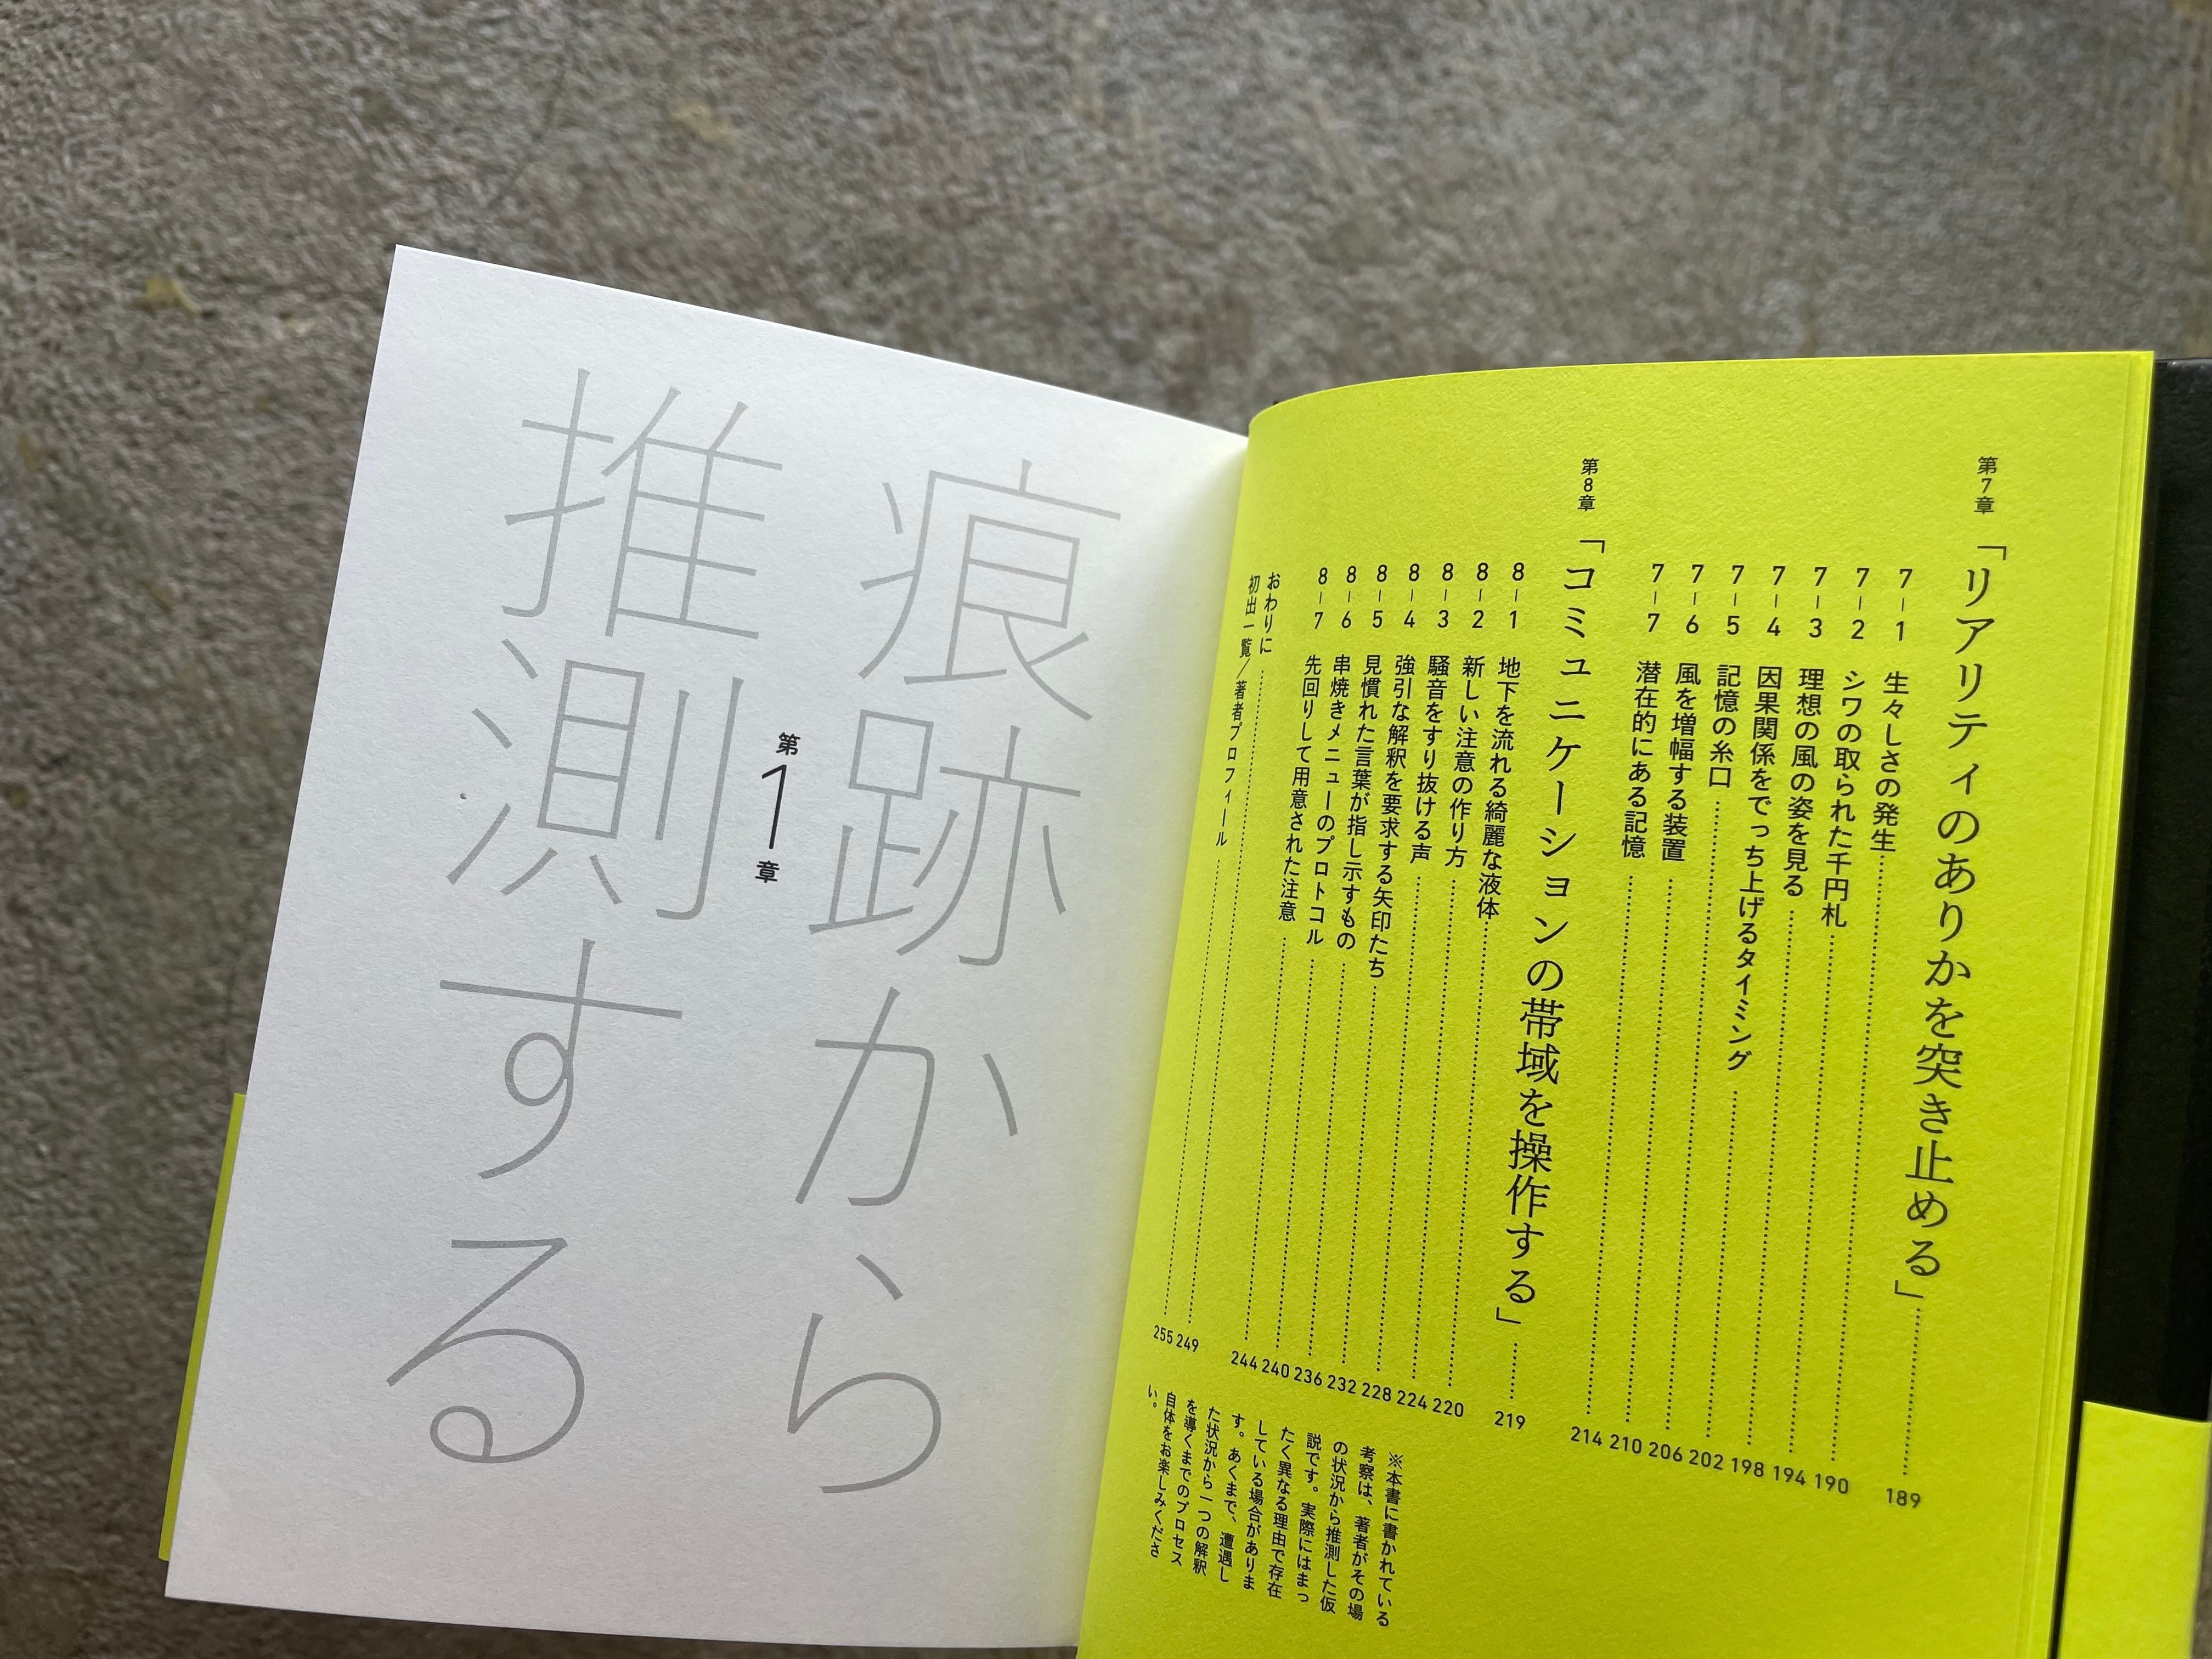 第7章 「リアリティのありかを突き止める」 189
7-1 生々しさの発生 190
7-2 シワの取られた千円札 194
7-3 理想の風の姿を見る 198
7-4 因果関係をでっち上げるタイミング 202
7-5 記憶の糸口 206
7-6 風を増幅する装置 210
7-7 潜在的にある記憶 214
第8章 「コミュニケーションの帯域を操作する」 219
8-1 地下を流れる綺麗な液体 220
8-2 新しい注意の作り方 224
8-3 騒音をすり抜ける声 228
8-4 強引な解釈を要求する矢印たち 232
8-5 見慣れた言葉が指し示すもの 236
8-6 串焼きメニューのプロトコル 240
8-7 先回りして用意された注意 244
おわりに 249
初出一覧/著者プロフィール 255
※本書に書かれている
考察は、著者がその場
の状況から推測した仮
説です。実際にはまっ
たく異なる理由で存在
している場合がありま
す。あくまで、遭遇し
た状況から一つの解釈
を導くまでのプロセス
自体をお楽しみくださ
い。
痕跡から
第1章
推測する